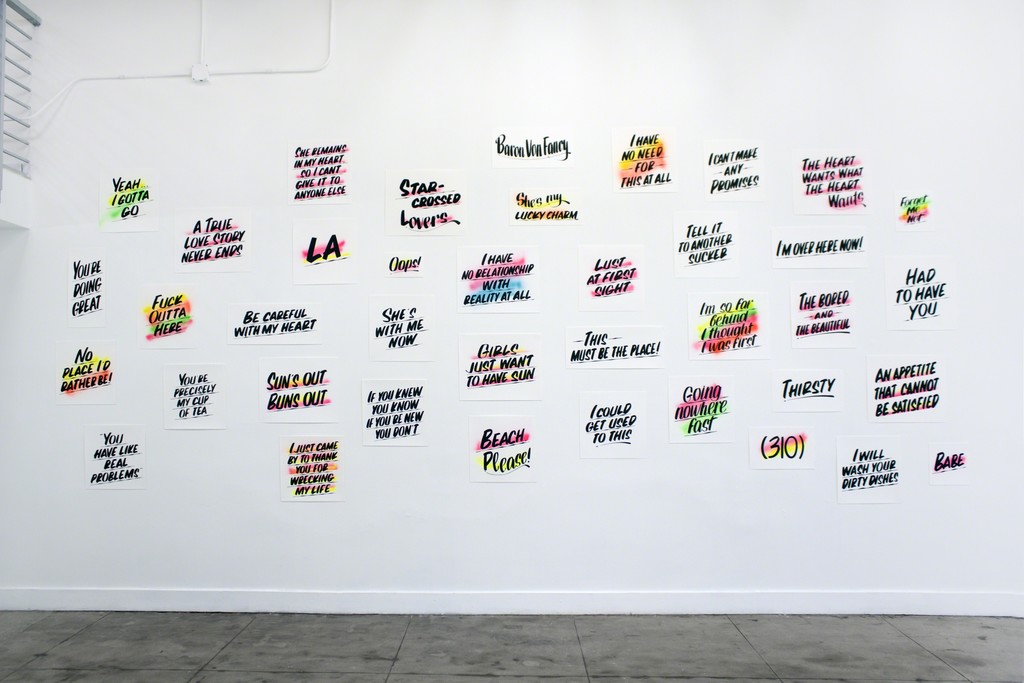 YEAH
I GOTTA
GO
SHE REMAINS
IN MY HEART
SO I CAN'T
GIVE IT TO
ANYONE ELSE
BARON VON FANCY
I HAVE
NO NEED
FOR
THIS AT ALL
I CAN'T MAKE
-ANY-
PROMISES
THE HEART
WANTS WHAT
THE HEART
Wants
STAR-
CROSSED
Lovers
She's my
LUCKY CHARM
Forget
Me
Not
A TRUE
LOVE STORY
NEVER ENDS
LA
Oops!
I HAVE
NO RELATIONSHIP
WITH
REALITY AT ALL
LUST
AT FIRST
SIGHT
TELL IT
TO ANOTHER
SUCKER
I'M OVER HERE NOW!
YOU'RE
DOING
GREAT
FUCK
OUTTA
HERE
BE CAREFUL
WITH MY HEART
SHE'S
WITH ME
NOW
THIS
MUST BE THE PLACE!
I'm so far
behind
I thought
I was first
THE BORED
-AND-
THE BEAUTIFUL
HAD
TO HAVE
YOU
NO
PLACE I'D
RATHER BE!
YOU'RE
PRECISELY
MY CUP
OF TEA
SUN'S OUT
BUNS OUT
IF YOU KNEW
YOU KNOW
IF YOU BE NEW
YOU DON'T
GIRLS
JUST WANT
TO HAVE SUN
I COULD
GET USED
TO THIS
GOING
nowhere
Fast
THIRSTY
AN APPETITE
THAT CANNOT
BE SATISFIED
YOU
HAVE LIKE
REAL
PROBLEMS
I JUST CAME
BY TO THANK
YOU FOR
WRECKING
MY LIFE
BEACH
Please!
(310)
I WILL
WASH YOUR
DIRTY DISHES
BABE